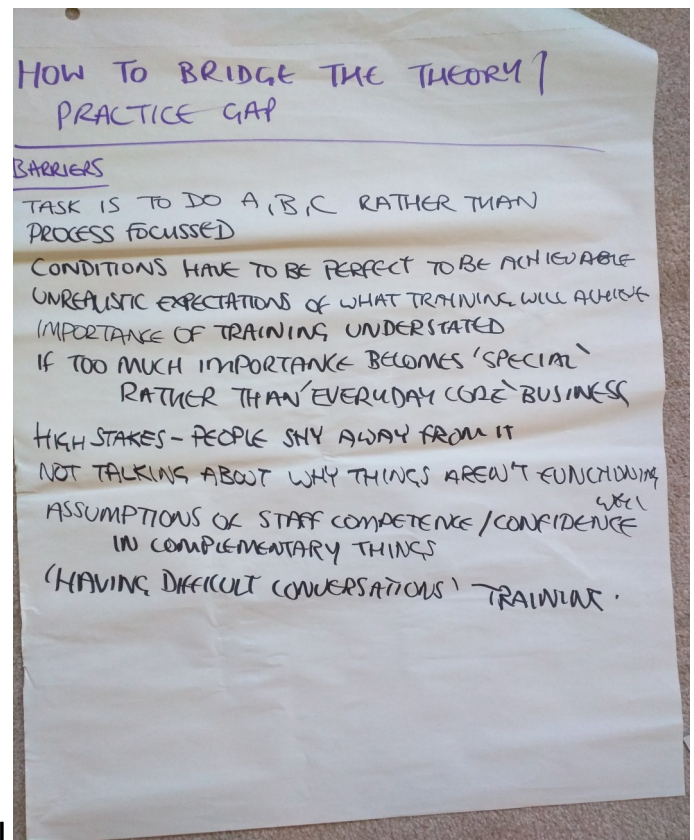 HOW TO BRIDGE THE THEORY /
PRACTICE GAP
BARRIERS
TASK IS TO DO A, B, C RATHER THAN
PROCESS FOCUSSED
CONDITIONS HAVE TO BE PERFECT TO BE ACHIEVABLE
UNREALISTIC EXPECTATIONS OF WHAT TRAINING WILL ACHIEVE
IMPORTANCE OF TRAINING UNDERSTATED
IF TOO MUCH IMPORTANCE BECOMES 'SPECIAL'
RATHER THAN 'EVERYDAY CORE' BUSINESS
HIGH STAKES - PEOPLE SHY AWAY FROM IT
NOT TALKING ABOUT WHY THINGS AREN'T FUNCTIONING
WELL
ASSUMPTIONS OF STAFF COMPETENCE / CONFIDENCE
IN COMPLEMENTARY THINGS
'HAVING DIFFICULT CONVERSATIONS' TRAINING.